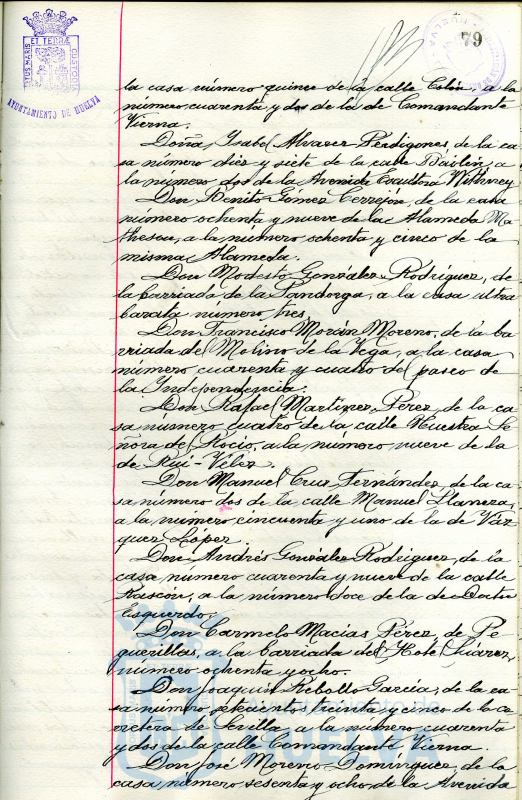 PORTUS MARIS ET TERRÆ CUSTODIA
AYUNTAMIENTO DE HUELVA
79
la casa número quince de la calle Colón, a la
número cuarenta y dos de la de Comandante
Vierna.
Doña Isabel Alvarez Perdigones, de la ca-
sa número diez y siete de la calle Bailén, a
la número dos de la Avenida Escultora Withney
Don Benito Gómez Cerrejón, de la casa
número ochenta y nueve de la Alameda Ma-
theson, a la número ochenta y cinco de la
misma Alameda.
Don Modesto González Rodríguez, de
la barriada de la Sandorga, a la casa ultra
barata número tres,
Don Francisco Morán Moreno, de la ba-
rriada del Molino de la Vega, a la casa
número cuarenta y cuatro del paseo de
la Independencia.
Don Rafael Martínez Pérez, de la ca-
sa número cuatro de la calle Nuestra Se-
ñora del Rocío, a la número nueve de la
de Rui-Vélez.
Don Manuel Cruz Fernández, de la ca-
sa número dos de la calle Manuel Llaneza,
a la número cincuenta y uno de la de Váz-
quez López.
Don Andrés González Rodríguez, de la
casa número cuarenta y nueve de la calle
Rascón, a la número doce de la de Doctor
Esquerdo;
Don Carmelo Macías Pérez, de Pe-
guerillas, a la barriada del Hotel Suárez,
número ochenta y ocho.
Don Joaquín Rebollo García, de la ca-
sa número setecientos treinta y cinco de la ca-
rretera de Sevilla, a la número cuarenta
y dos de la calle Comandante Vierna.
Don José Moreno Domínguez, de la
casa número sesenta y ocho de la Avenida